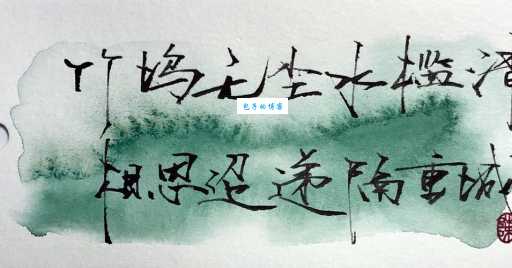 竹坞无尘水槛清
包子的博客
相思迢递隔重城